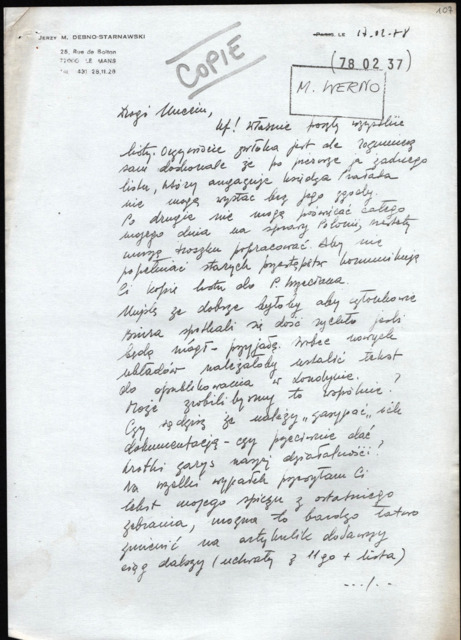 107
JERZY M. DEBNO-STARNAWSKI
28, Rue de Bolton
72000 LE MANS
Tél. (43) 28.11.29
PARIS, LE 17.02.78
COPIE
(78.02.37)
M. WERNO
Drogi
Uf! Właśnie poszły wszystkie
listy. Oczywiście zwłoka jest ale rozumiesz
sam doskonale że po pierwsze ja żadnego
listu, który angażuje księdza Prałata
nie mogę wysłać bez jego zgody.
Po drugie nie mogę poświęcać całego
mojego dnia na sprawy Polonii, niestety
muszę troszkę popracować. Aby nie
popełniać starych przestępstw komunikuję
Ci kopię listu do P.
Myślę że dobrze byłoby aby członkowie
Biura spotkali się dość szybko jeśli
będą mogli przyjadę. Wobec nowych
układów należałoby ustalić tekst
do opublikowania w Londynie.
Może zrobilibyśmy to wspólnie?
Czy sądzisz że należy „zasypać" ich
dokumentacją - czy przeciwnie dać
krótki zarys naszej działalności?
Na wszelki wypadek przesyłam Ci
tekst mojego speechu z ostatniego
zebrania, można to bardzo łatwo
zmienić na artykulik dodawszy
ciąg dalszy (uchwały z 11go + lista)
.../..